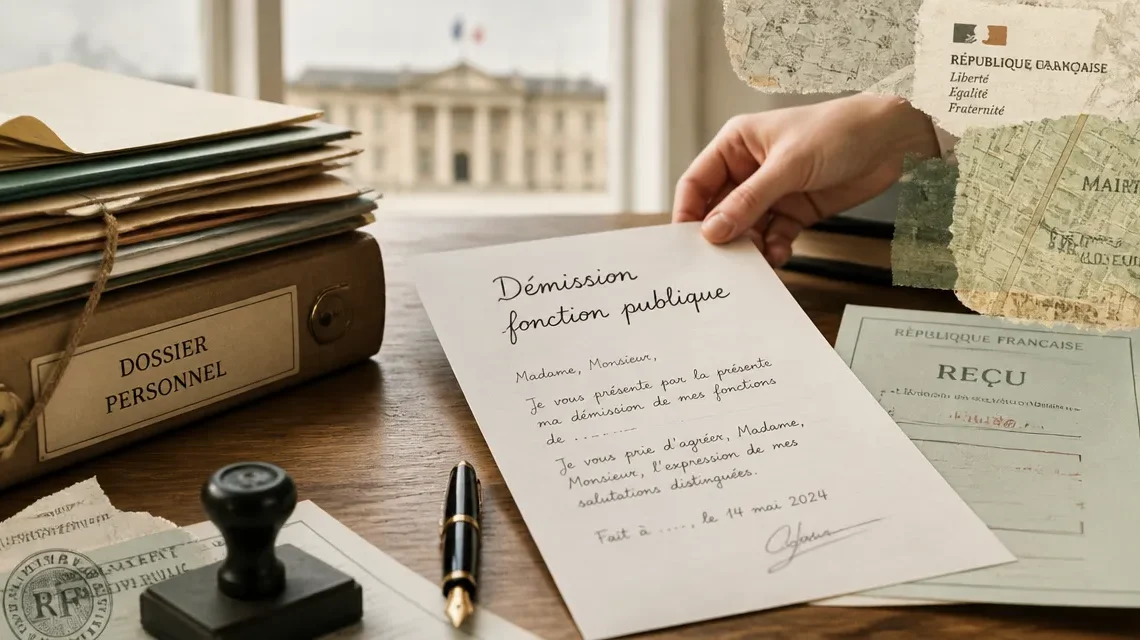 DOSSIER
PERSONNEL
Démission
fonction publique
Madame, Monsieur,
Je vous présente par la présente
ma démission de mes fonctions
de ........
Je vous prie d'agréer, Madame,
Monsieur, l'expression de mes
salutations distinguées.
Fait à ....., le 14 mai 2024
RÉPUBLIQUE
Liberté
Egalité
Fraternité
MAIR
RÉPUBLIQUE FRANCAISE
REÇU
RF